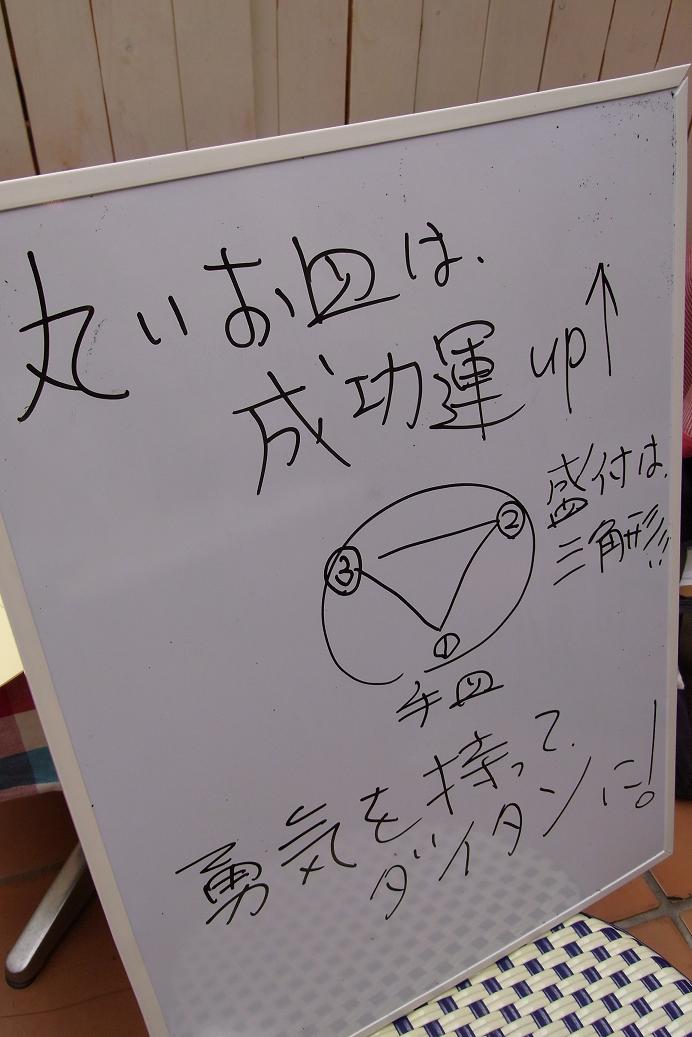 丸いお皿は、
成功運up↑
盛付は、
三角形!!
②
③
①
手皿
勇気を持って、
ダイタンに!